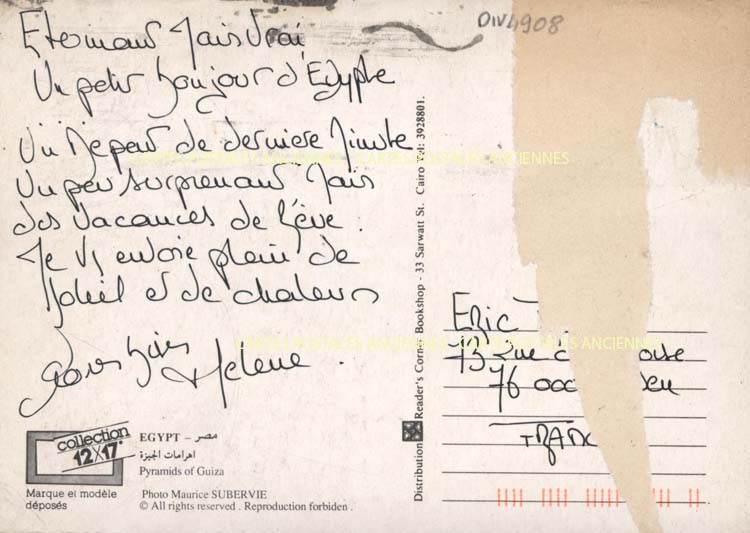 DIV4908
Etonnant Mais Vrai
Un petit bonjour d'Egypte
Un Depart de derniere Minute
Un peu surprenant Mais
des Vacances de Rêve.
Je Vs envoie plein de
Soleil et de chaleur
Gros bises
Helene.
CARTES POSTALES ANCIENNES CARTES POSTALES ANCIENNES
CARTES POSTALES ANCIENNES CARTES POSTALES ANCIENNES
collection
12X17
Marque et modèle
déposés
EGYPT – مصر
اهرامات الجيزة
Pyramids of Guiza
Photo Maurice SUBERVIE
© All rights reserved . Reproduction forbiden .
Distribution Reader's Corner Bookshop - 33 Sarwatt St. Cairo Tel: 3928801.
ERIC
73 Rue
76 000
FRANC